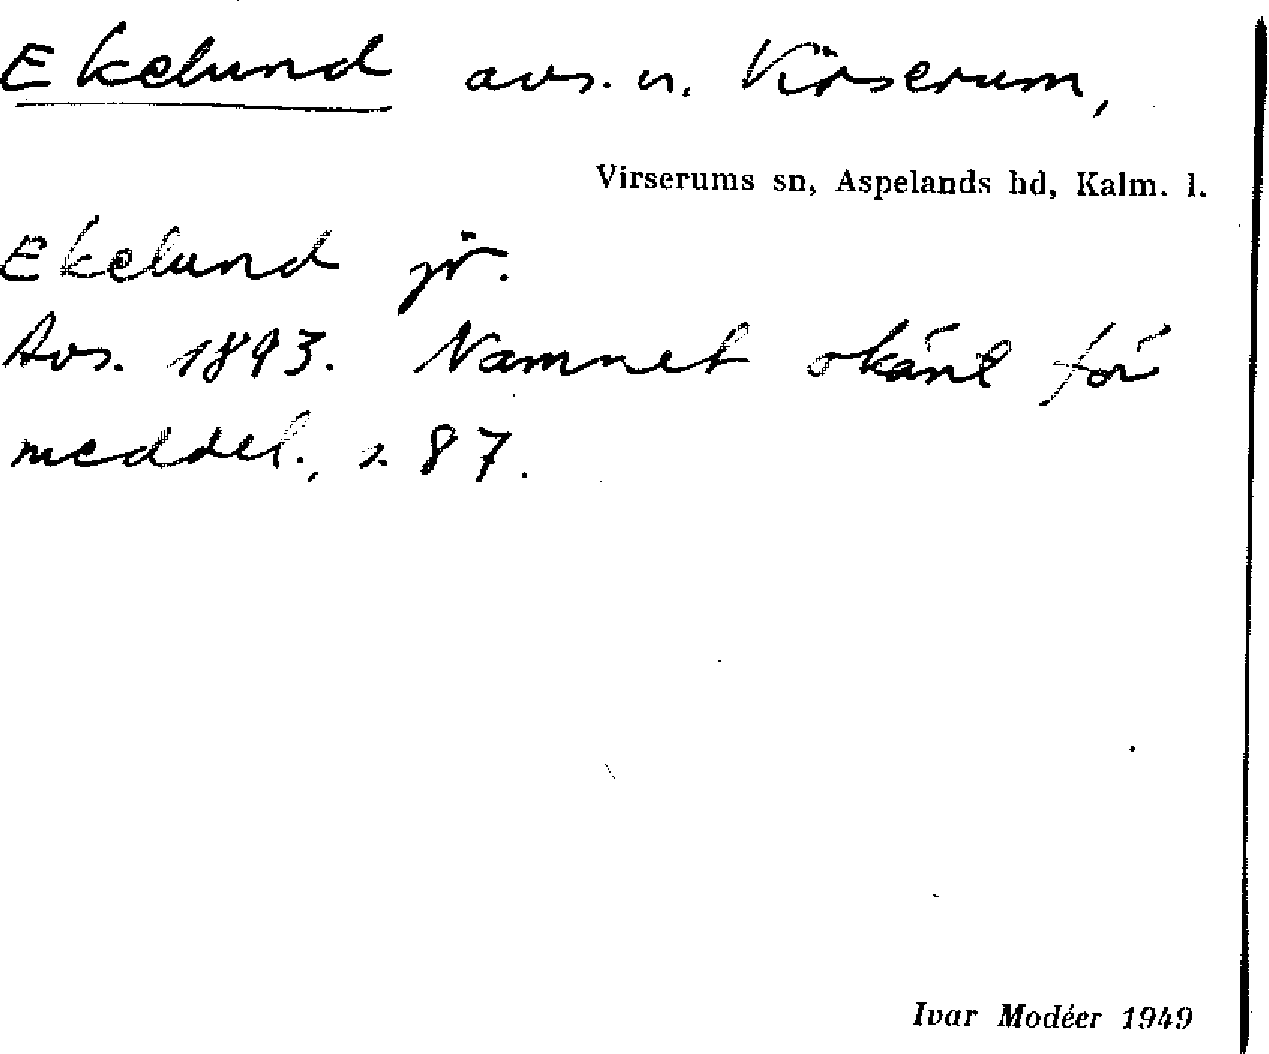 Ekelund avs. u. Virserum,
Virserums sn, Aspelands hd, Kalm. l.
Ekelund jr.
Avs. 1893. Namnet okänt för
meddel., 87.
Ivar Modéer 1949